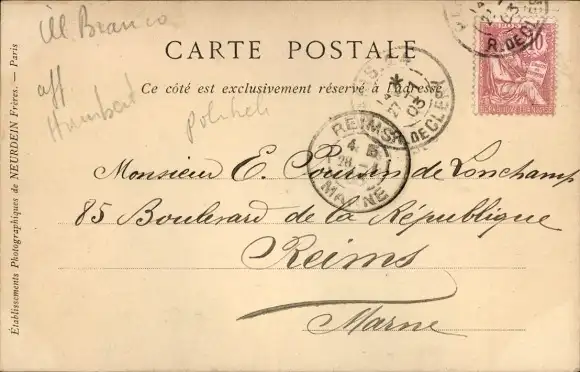 ill. Branco
CARTE POSTALE
Ce côté est exclusivement réservé à l'adresse
aff
Humbert
10
R. DE CLE
DE CLE
REIMS
4. E
28
MARNE
Monsieur E. Poinsin de Lonchamp
85 Boulevard de la République
Reims
Marne
Établissements Photographiques de NEURDEIN Frères. — Paris